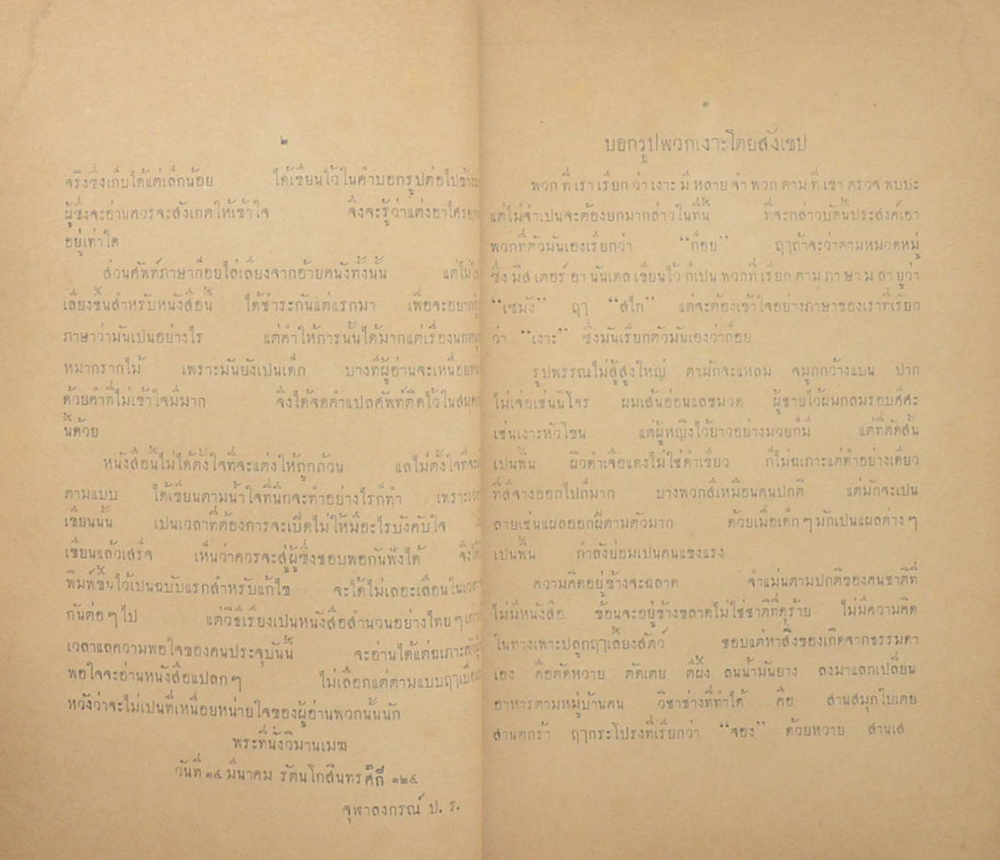 ๒
จริงซึ่งเก็บได้แต่เล็กน้อย ได้เขียนไว้ในคำบอกรูปต่อไปข้าง
ผู้ซึ่งจะอ่านควรจะสังเกตให้เข้าใจ จึงจะรู้ว่าแต่งอาไศรย
อยู่เท่าใด
ส่วนศัพท์ภาษาก็อยไล่เลียงจากอ้ายคนังทั้งนั้น แต่ไม่
เลียงขึ้นสำหรับหนังสือนี้ ได้ชำระกันแต่แรกมา เพื่อจะอยาก
ภาษาว่ามันเป็นอย่างไร แต่คำให้การนั้นได้มากแต่เรื่องนก
หมากรากไม้ เพราะมันยังเป็นเด็ก บางทีผู้อ่านจะเหนื่อย
ด้วยคำที่ไม่เข้าใจมีมาก จึงได้จดคำแปลศัพท์ติดไว้ในสมุด
นี้ด้วย
หนังสือนี้ไม่ได้ตั้งใจที่จะแต่งให้ถูกถ้วน แลไม่ตั้งใจที่
ตามแบบ ได้เขียนตามน้ำใจที่นึกจะทำอย่างไรก็ทำ เพราะ
เขียนนั้น เป็นเวลาที่ต้องการจะเปิดไม่ให้มีอะไรบังคับใจ
เขียนแล้วเสร็จ เห็นว่าควรจะสู่ผู้ซึ่งชอบพอกันฟังได้ จึง
พิมพ์ขึ้นไว้เป็นฉบับแรกสำหรับแก้ไข จะได้ไม่เลอะเลือนใน
กันต่อๆไป แต่วิธีเรียงเป็นหนังสือสำนวนอย่างไทยๆ
เวลาแลความพอใจของคนประจุบันนี้ จะอ่านได้แต่ฉเภาะ
พอใจจะอ่านหนังสือแปลกๆ ไม่เลือกแต่ตามแบบฤๅ
หวังว่าจะไม่เป็นที่เหนื่อยหน่ายใจของผู้อ่านพวกนั้นนัก
พระที่นั่งวิมานเมฆ
วันที่ ๑๔ มีนาคม รัตนโกสินทร ศก๒ ๑๒๔
จุฬาลงกรณ์ ป. ร.
๓
บอกรูปพวกเงาะโดยสังเขป
พวกที่เราเรียกว่าเงาะ มีหลายจำพวกตามที่เขาตรวจพบปะ
แต่ไม่จำเป็นจะต้องยกมากล่าวในที่นี้ ที่จะกล่าวบัดนี้ประสงค์เอา
พวกที่ตัวมันเองเรียกว่า "ก็อย" ฤๅถ้าจะว่าตามหมวดหมู่
ซึ่งมิสเตอร์อานันเดลเขียนไว้ ก็เป็นพวกที่เรียกตามภาษามลายูว่า
"เซมัง" ฤๅ "สไก" แต่จะต้องเข้าใจอย่างภาษาของเราที่เรียก
ว่า "เงาะ" ซึ่งมันเรียกตัวมันเองว่าก็อย
รูปพรรณไม่สู้สูงใหญ่ ตามักจะแหลม จมูกกว้างแบน ปาก
ไม่เจ่อเช่นนิโกร ผมเส้นอ่อนแลขมวด ผู้ชายไว้ผมกลมรอบศีศะ
เช่นเงาะหัวโขน แต่ผู้หญิงไว้ยาวอย่างมวยก็มี แต่ที่ตัดสั้น
เป็นพื้น ผิวดำเจือแดงไม่ใช่ดำเขียว ก็ไม่ฉเภาะแต่ดำอย่างเดียว
ที่สีจางออกไปก็มาก บางพวกสีเหมือนคนปกติ แต่มักจะเป็น
ลายเช่นแผลออกฝีตามตัวมาก ด้วยเมื่อเด็กๆ มักเป็นแผลต่างๆ
เป็นพื้น กำลังย่อมเป็นคนแขงแรง
ความคิดอยู่ข้างจะฉลาด จำแม่นตามปกติของคนชาติที่
ไม่มีหนังสือ ข้อนจะอยู่ข้างขลาดไม่ใช่ชาติที่ดุร้าย ไม่มีความคิด
ในทางเพาะปลูกฤๅเลี้ยงสัตว์ ชอบแต่หาสิ่งของเกิดจากธรรมดา
เอง คือตัดหวาย ตัดเตย ตีผึ้ง ลนน้ำมันยาง ลงมาแลกเปลี่ยน
อาหารตามหมู่บ้านคน วิชาช่างที่ทำได้ คือ สานสมุกใบเตย
สานตกร้า ฤๅกระโปรงที่เรียกว่า "จอง" ด้วยหวาย สานเส